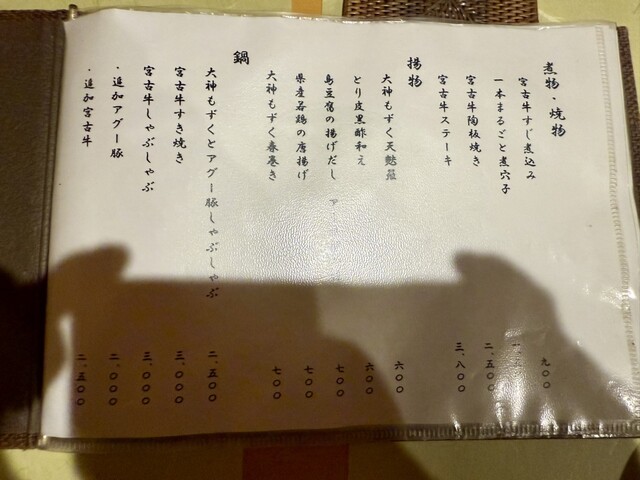 煮物・焼物
宮古牛すじ煮込み 九〇〇
一本まるごと煮穴子 一、
宮古牛陶板焼き 二、五〇〇
宮古牛ステーキ 三、八〇〇
揚物
大神もずく天麩羅 六〇〇
とり皮黒酢和え 六〇〇
島豆腐の揚げだし 七〇〇
県産若鶏の唐揚げ 七〇〇
大神もずく春巻き 七〇〇
鍋
大神もずくとアグー豚しゃぶしゃぶ 二、五〇〇
宮古牛すき焼き 三、〇〇〇
宮古牛しゃぶしゃぶ 三、〇〇〇
・追加アグー豚 二、〇〇〇
・追加宮古牛 二、五〇〇